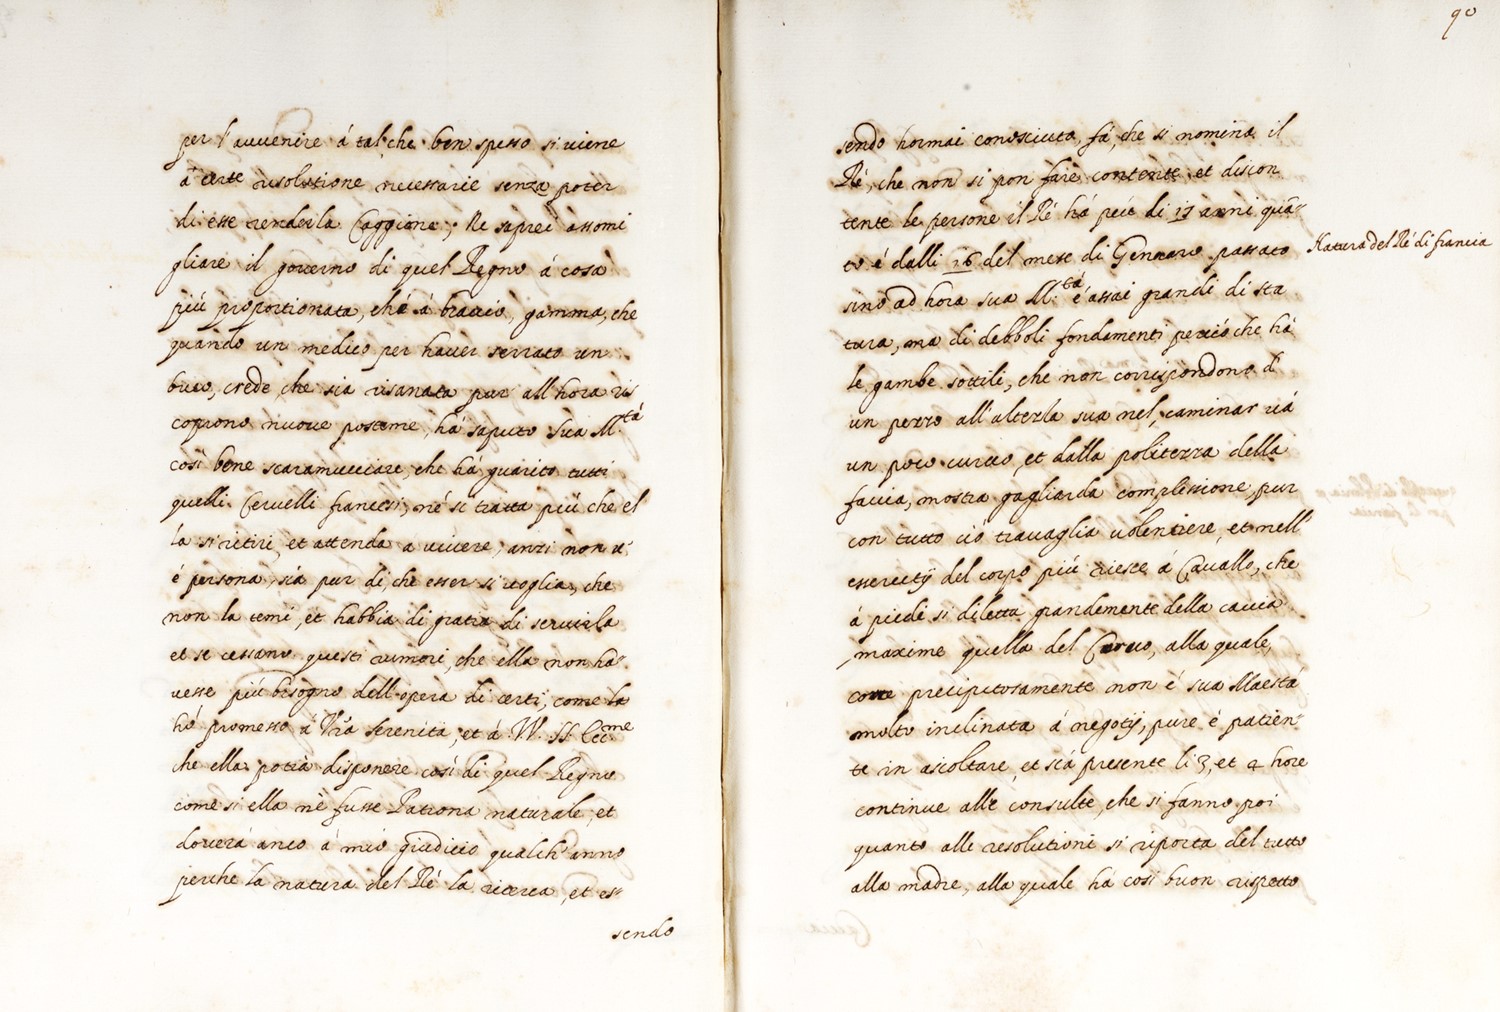 per l'avvenire á tal che ben spesso si viene
á certe risolutione necessarie senza poter
di esse renderla Caggione; Ne saprei assomi
gliare il governo di quel Regno á cosa
piú proportionata, ch'á á braccio, ó gamma, che
quando un medico per haver serrato un
buco, crede che sia risanata pur all'hora ris
coprono nuove posteme, há saputo Sua M.tá
cosí bene scaramucciare, che há guarito tutti
quelli Cervelli francesi, né si tratta piú che el
la si retiri, et attenda a vivere, anzi non v'
é persona, sia pur di che esser si voglia, che
non la temi, et habbia di gratia di servirla
et se cessano questi rumori, che ella non ha
vesse piú bisogno dell'opera di certi, come la
há promesso á V'ra Serenitá, et á VV. SS. Ecc.me
che ella potrá disponere cosí di quel Regno
come si ella n'é fusse Patrona naturale, et
doverá anco á mió giudicio qualch'anno
perche la natura del Ré la ricerca, et es-
sendo
90
sendo hormai conosciuta, fá, che si nomina il
Ré, che non si pon faré contente, et discon
tente le persone il Ré há piú di 17 anni quan-
to é dalli 16 del mese di Gennaro passato
sino ad hora sua M.tá é assai grandi di sta
tura, ma di debboli fondamenti percioche há
le gambe sottili, che non corrispondono d'
un pezzo all'altezza sua nel caminar vá
un poco curvo, et dalla politezza della
faccia, mostra gagliarda complessione, pur
con tutto ció travaglia volentiere, et nell'
essercitij del corpo piú riesce á Cavallo, che
á piedi si diletta grandemente della caccia
maxime quella del Cervo, alla quale,
corre precipitosamente non é sua Maestá
molto inclinata á negotij, pure é patien-
te in ascoltare, et stá presente li 3, et 4 hore
continue alle consulte, che si fanno, poi
quanto alle resolutioni si riporta del tutto
alla madre, alla quale há cosi buon rispetto
Natura del Ré di francia